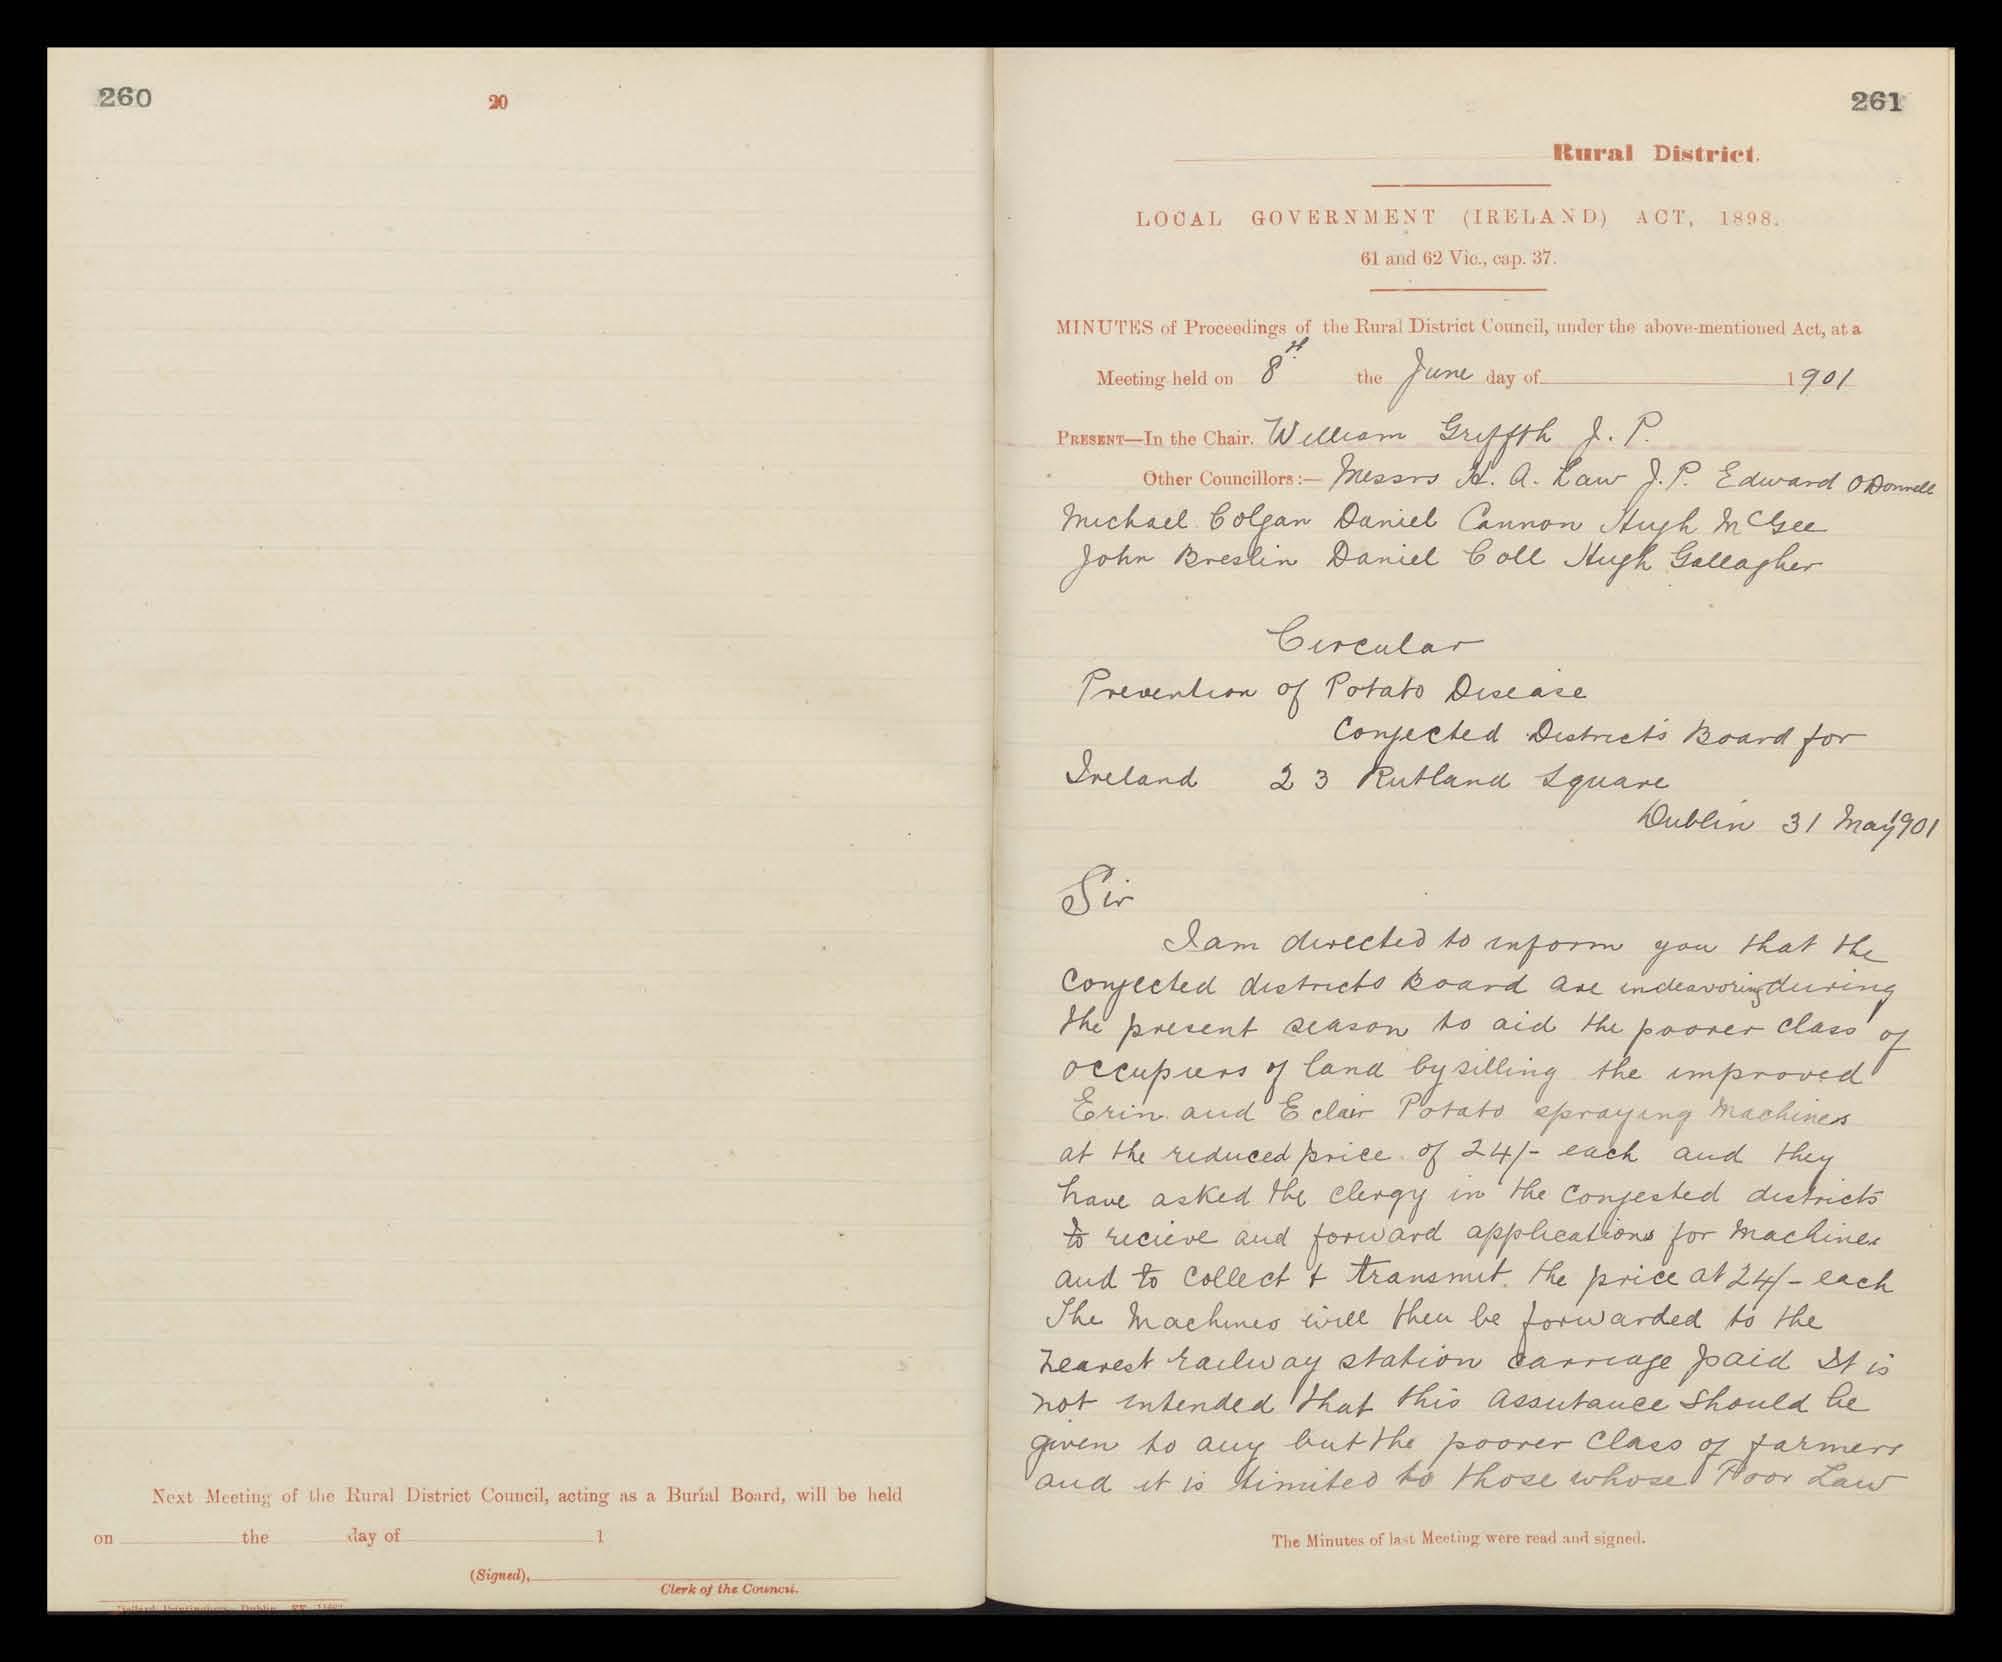 260
20
Next Meeting of the Rural District Council, acting as a Burial Board, will be held
on the day of 1
(Signed),
Clerk of the Council.
261
Rural District.
LOCAL GOVERNMENT (IRELAND) ACT, 1898.
61 and 62 Vic., cap. 37.
MINUTES of Proceedings of the Rural District Council, under the above-mentioned Act, at a
Meeting held on 8th the June day of 1901
PRESENT—In the Chair. William Griffith J. P.
Other Councillors:— Messrs H. A. Law J.P. Edward O Donnell
Michael Colgan Daniel Cannon Hugh McGee
John Breslin Daniel Coll Hugh Gallagher
Circular
Prevention of Potato Disease
Conjected Districts Board for
Ireland 23 Rutland Square
Dublin 31 May 1901
Sir
I am directed to inform you that the
Conjected districts Board are indeavoring during
the present season to aid the poorer class of
occupiers of land by silling the improved
Erin and Eclair Potato spraying Machines
at the reduced price of 24/- each and they
have asked the clergy in the Conjested districts
to recieve and forward applications for Machines
and to collect & transmit the price at 24/- each
The Machines will then be forwarded to the
nearest railway station carriage paid It is
not intended that this assistance should be
given to any but the poorer class of farmers
and it is limited to those whose Poor Law
The Minutes of last Meeting were read and signed.